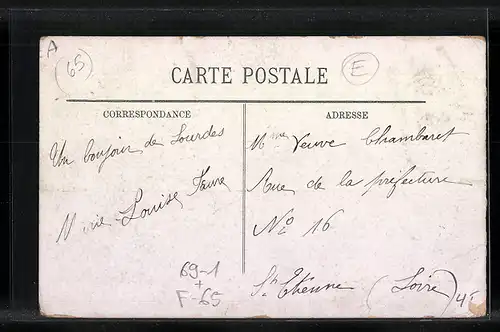 A
(65)
E
CARTE POSTALE
CORRESPONDANCE
Un bonjour de Lourdes
Marie-Louise Faure
69-1
+
F-65
ADRESSE
Mme Veuve Chambaret
Rue de la préfecture
No 16
St Etienne (Loire)